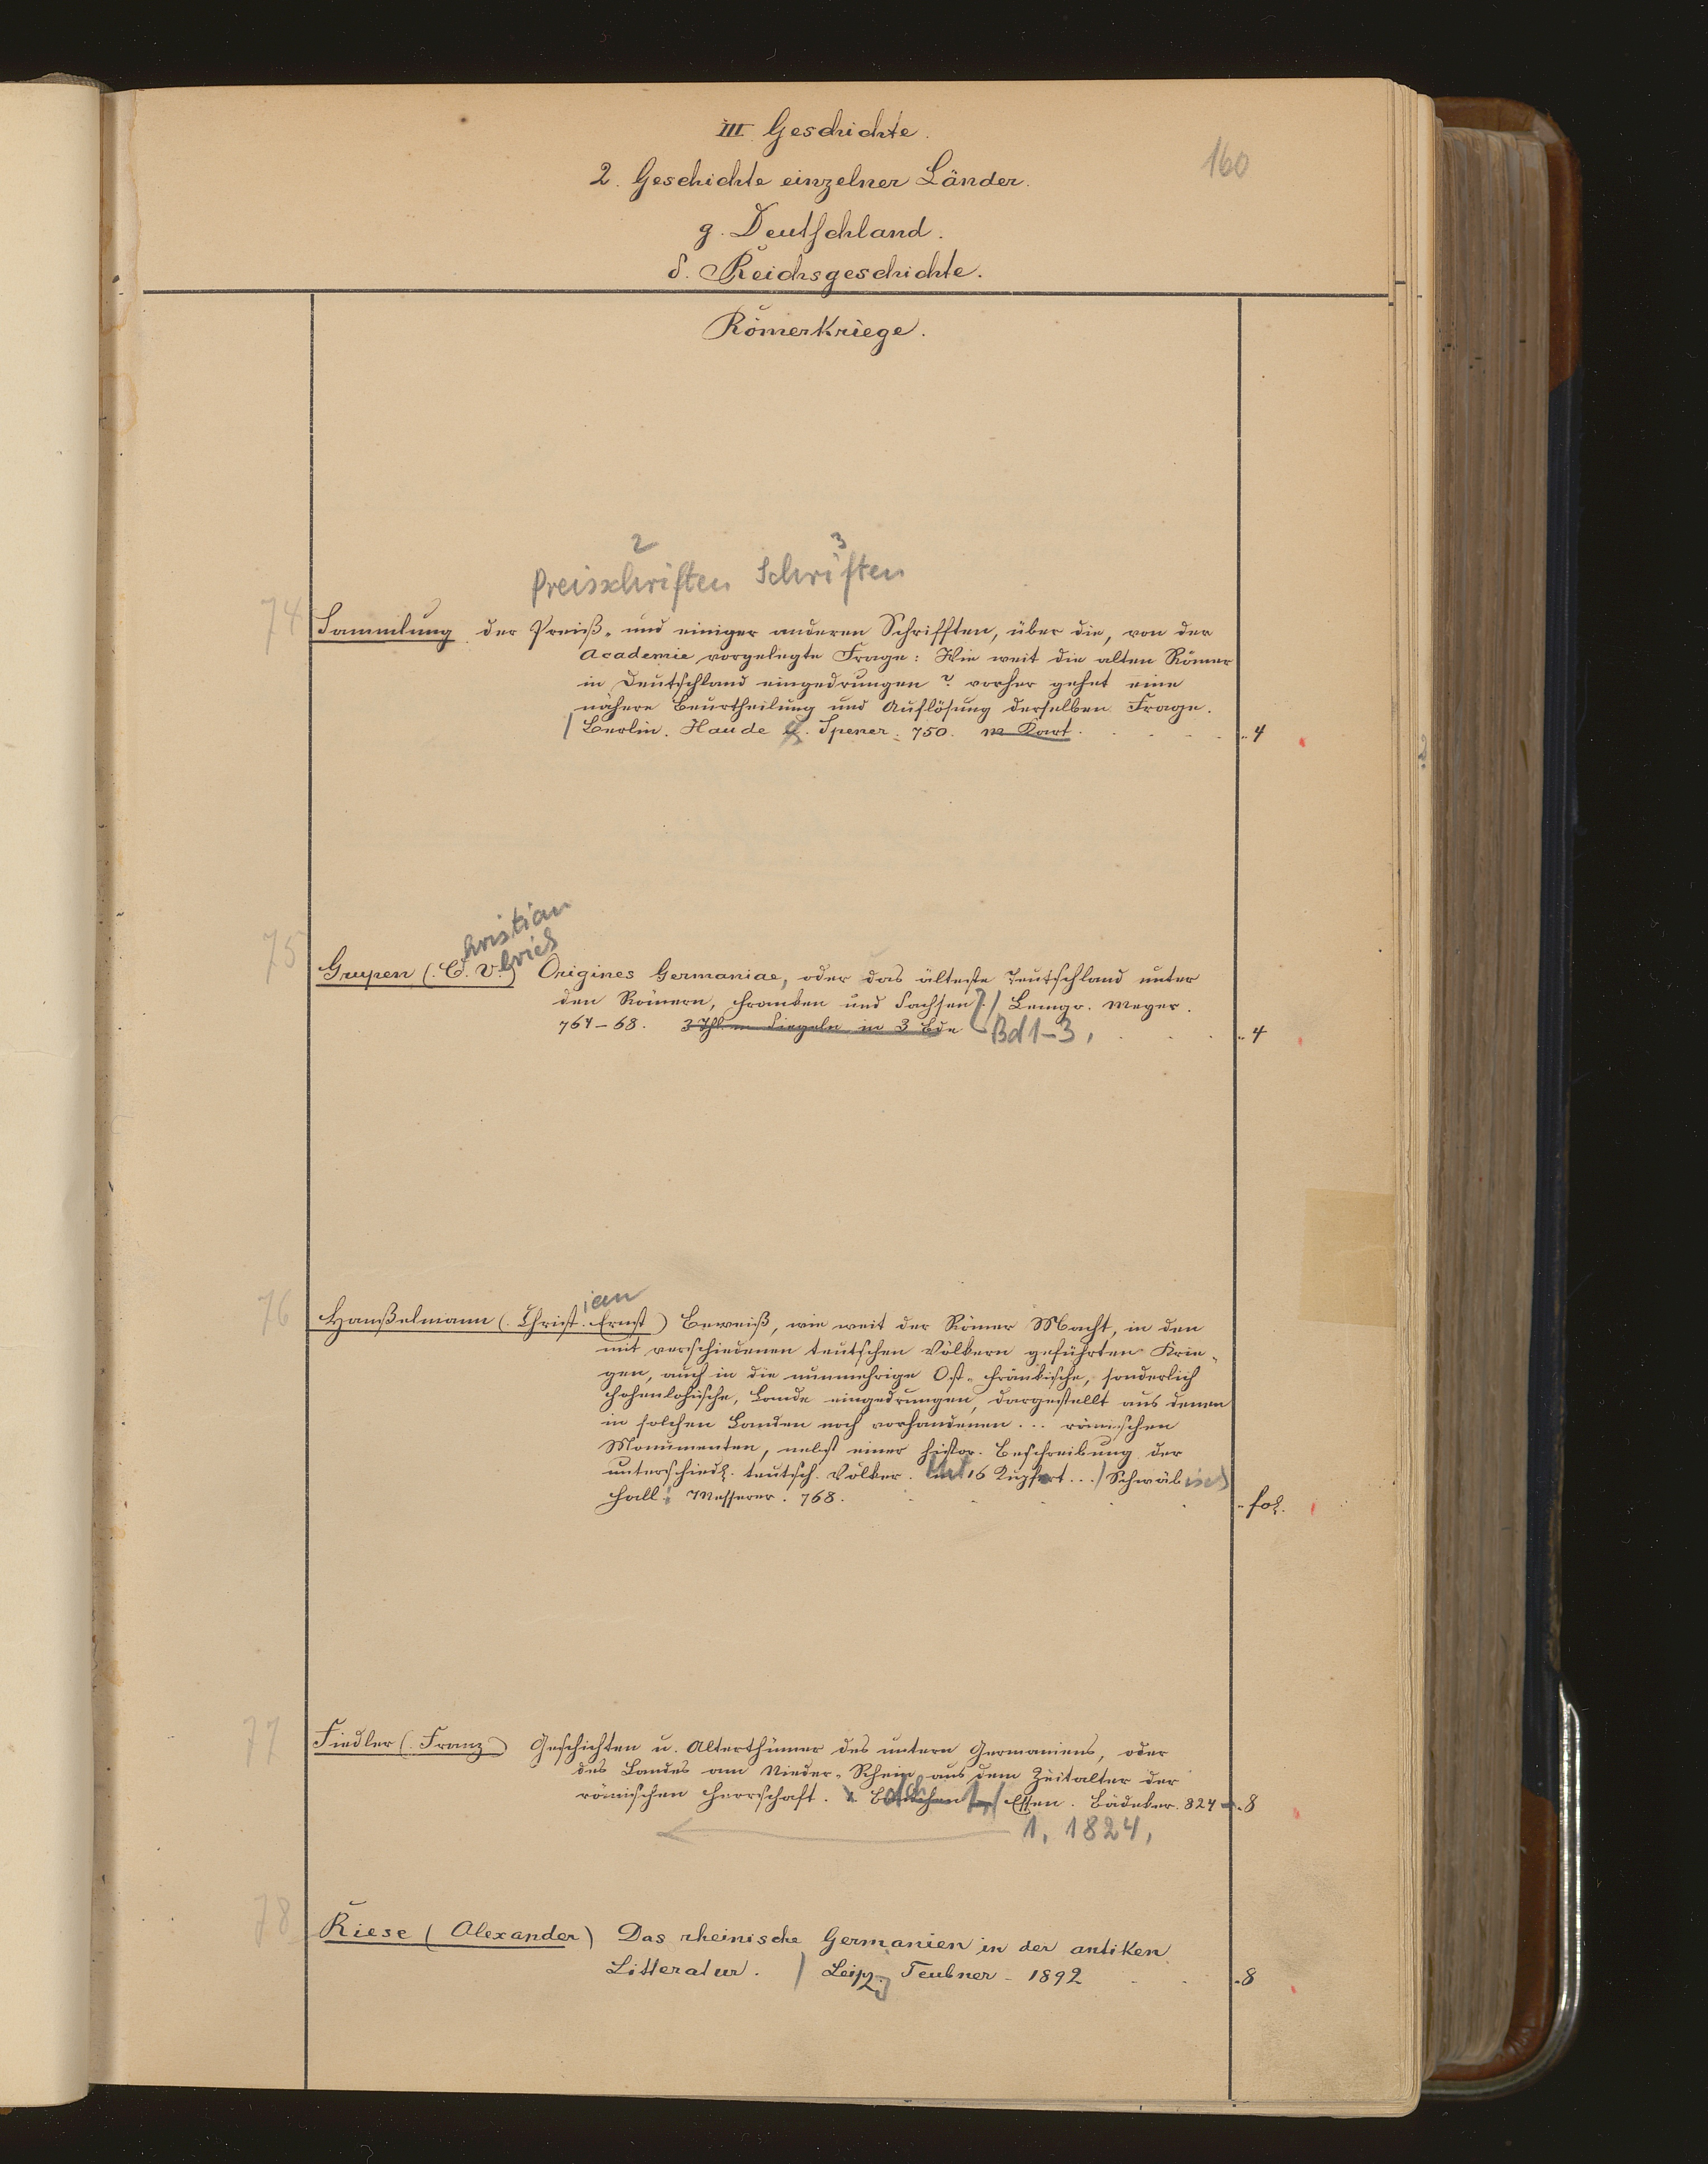 III Geschichte.
160
2. Geschichte einzelner Länder.
g. Deutschland.
δ. Reichsgeschichte.
Römerkriege.
2 3
Preisschriften Schriften
74
Sammlung der Preiß- und einiger anderen Schrifften, über die, von der
Academie vorgelegte Frage: Wie weit die alten Römer
in Deutschland eingedrungen? vorher gehet eine
nähere Beurtheilung und Auflösung derselben Frage.
/ Berlin. Haude &. Spener. 750. m Kart. 4
hristian
lrich
75
Grupen (C. U.) Origines Germaniae, oder das älteste Teutschland unter
den Römern, Franken und Sachsen. / Lemgo. Meyer.
764-68. 3 Thle m Siegeln in 3 Bde Bd 1-3, 4
ian
76
Hanßelmann (Christ. Ernst) Beweiß, wie weit der Römer Macht, in den
mit verschiedenen teutschen Völkern geführten Krie-
gen, auch in die nunmehrige Ost-Fränkische, sonderlich
Hohenlohische, Lande eingedrungen, dargestellt aus denen
in solchen Landen noch vorhandenen ... römischen
Monumenten, nebst einer histor. Beschreibung der
unterschiedl. teutsch. Völker. Mit 16 Kupfert... / Schwäbisch
Hall: Messerer. 768. fol.
77
Fiedler (Franz) Geschichten u. Alterthümer des untern Germaniens, oder
des Landes am Nieder-Rhein aus dem Zeitalter der
römischen Herrschaft. / Essen. Bädeker. 824 8
1. 1824,
78
Riese (Alexander) Das rheinische Germanien in der antiken
Litteratur. / Leipz. Teubner - 1892 8